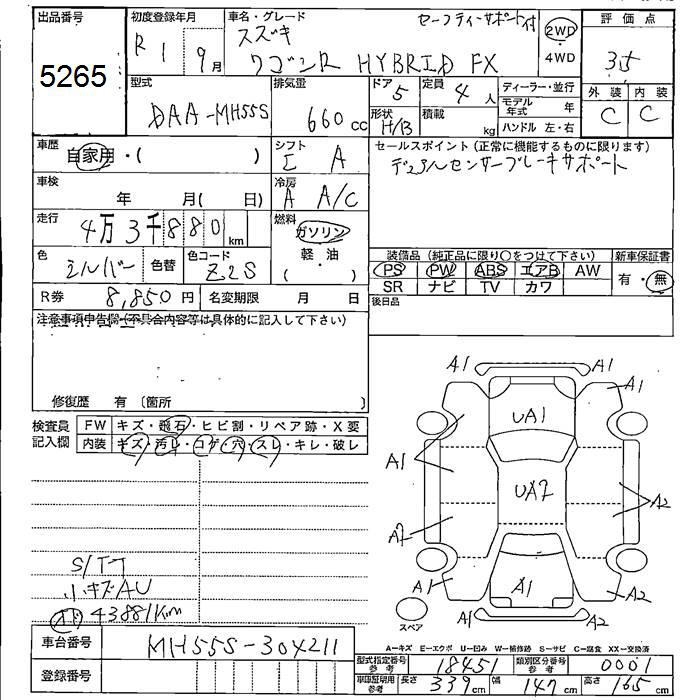 出品番号
5265
初度登録年月
R 1 9月
車名・グレード
セーフティーサポート付
スズキ
ワゴンR HYBRID FX
2WD
・
4WD
評価点
3.5
外装 内装
C C
型式
DAA-MH55S
排気量
660cc
ドア
5
形状
H/B
定員
4人
積載
kg
ディーラー・並行
モデル年式 年
ハンドル 左・右
車歴
自家用・( )
シフト
I A
車検
年 月( 日)
冷房
A A/C
走行
4万3千880km
燃料
ガソリン
(軽・油)
色
シルバー
色替
色コード
Z2S
R券 8,850円
名変期限 月 日
セールスポイント(正常に機能するものに限ります)
デュアルセンサーブレーキサポート
装備品(純正品に限り○をつけて下さい)
PS PW ABS エアB AW
SR ナビ TV カワ
新車保証書
有・無
後日品
注意事項申告欄(不具合内容等は具体的に記入して下さい)
修復歴 有 〔箇所
検査員
記入欄
FW キズ・飛石・ヒビ割・リペア跡・X要
内装 キズ・汚レ・コゲ・穴・スレ・キレ・破レ
小キズAU
43881km
A1 A1
A1
UA1
A1
UA2
A2
A2
A1
A1
A2
A1 A2
スペア
A－キズ E－エクボ U－凹み W－補修跡 S－サビ C－腐食 XX－交換済
車台番号 MH55S-304211
登録番号
型式指定番号 参考 18451
類別区分番号 参考 0001
車庫証明用 参考 長さ 339cm 幅 147cm 高さ 165cm